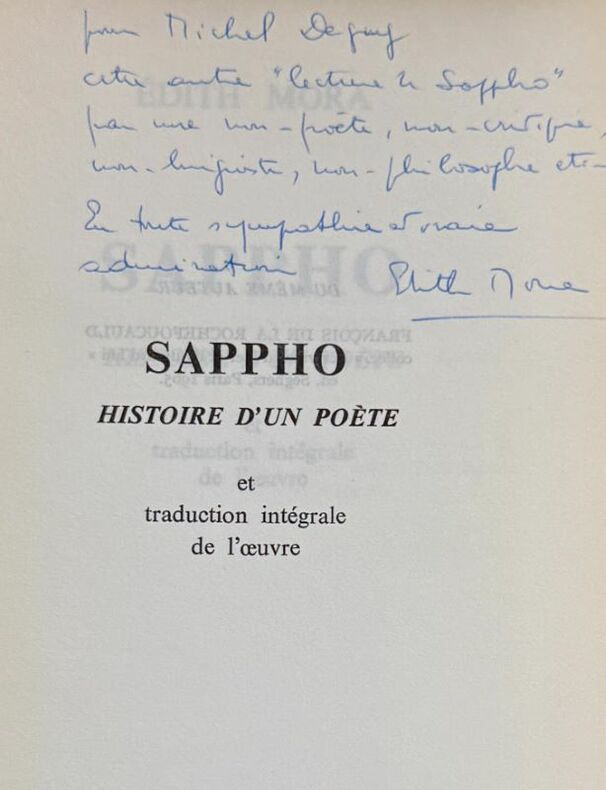 pour Michel Deguy
cette autre "lecture de Sappho"
par une non-poète, non-critique,
non-linguiste, non-philosophe etc-
En toute sympathie et vraie
admiration Edith Mora
SAPPHO
HISTOIRE D'UN POÈTE
et
traduction intégrale
de l'œuvre